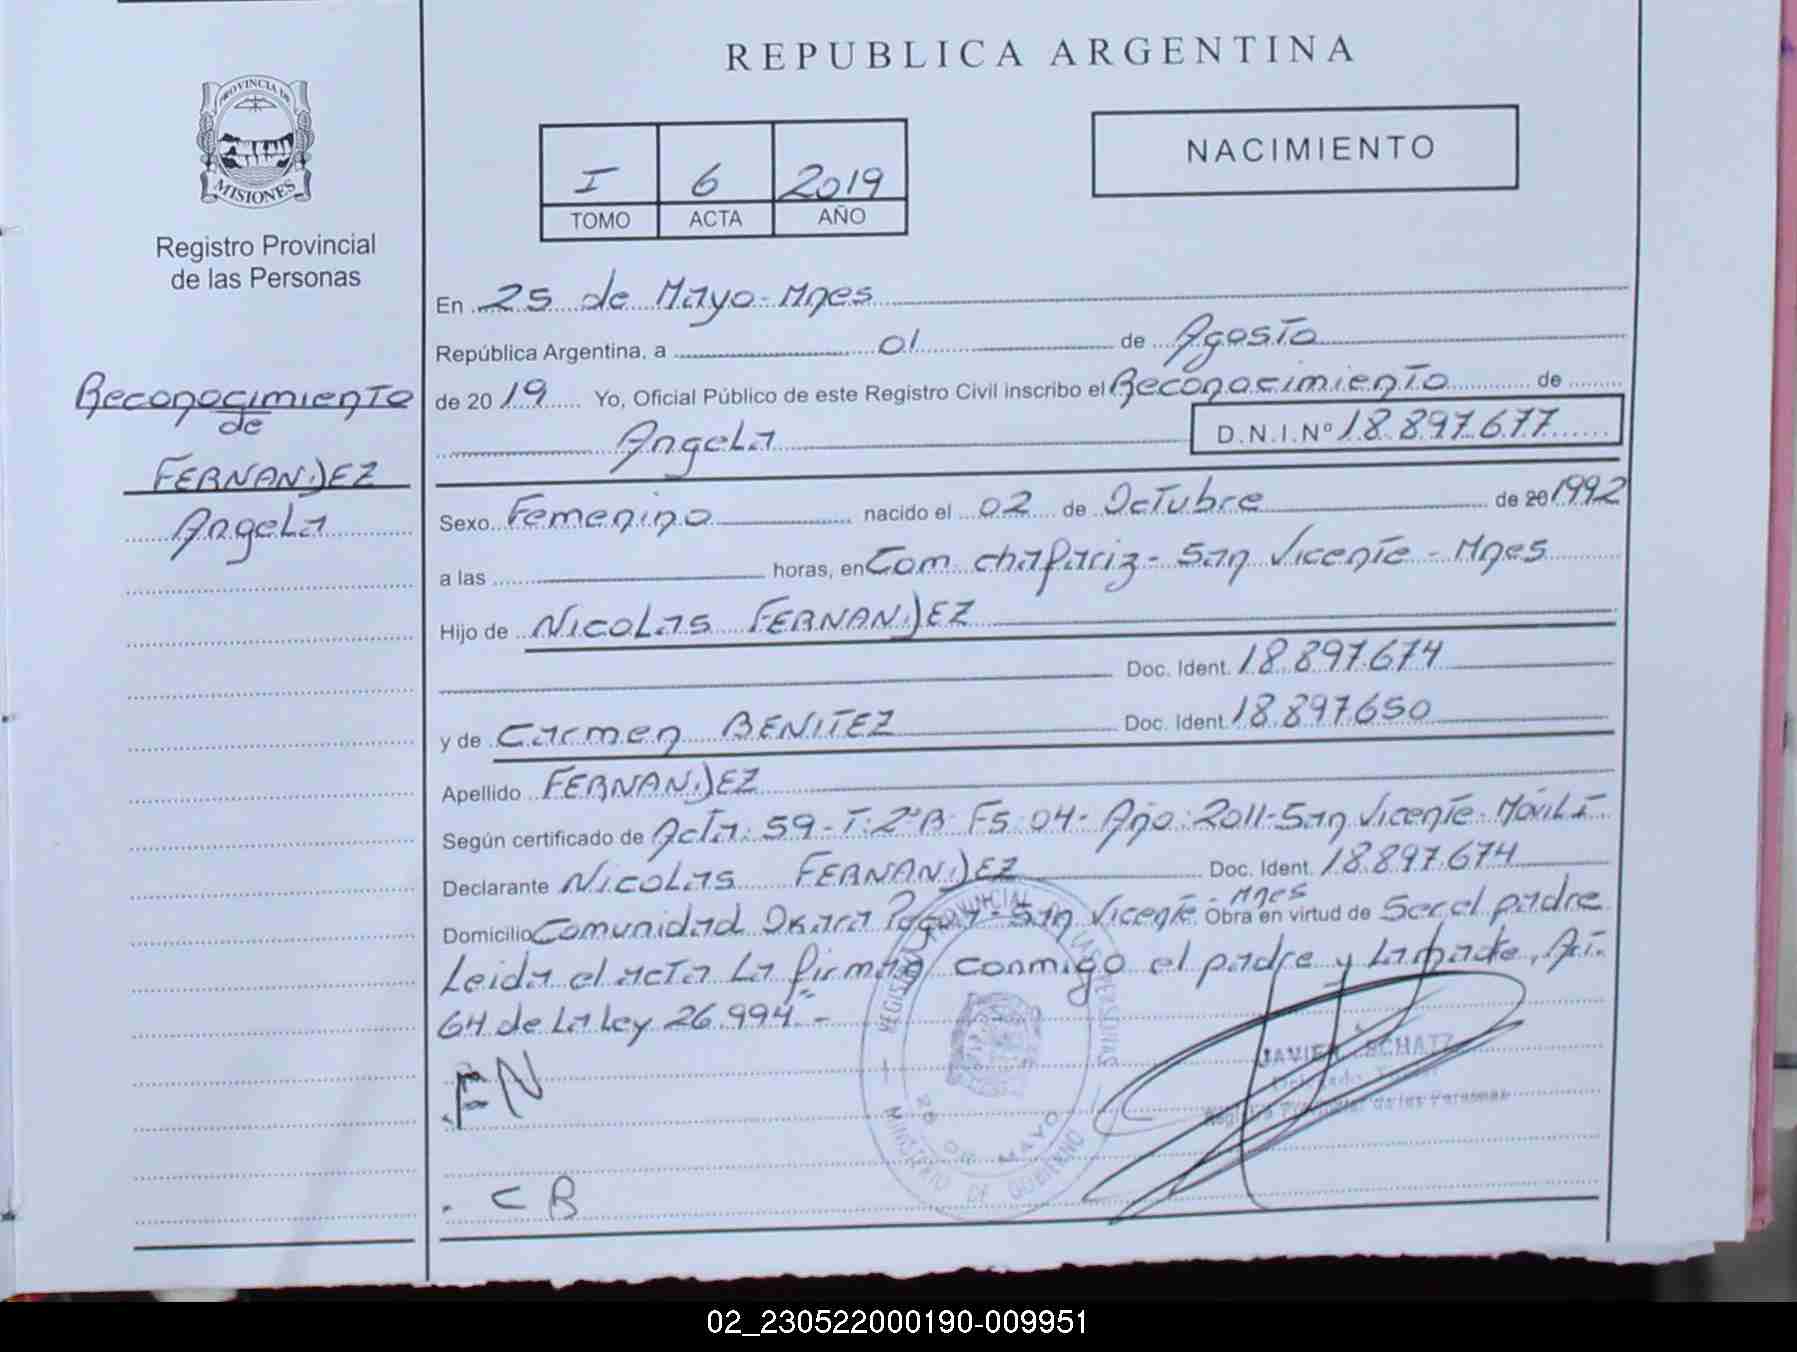 REPUBLICA ARGENTINA
PROVINCIA DE
MISIONES
Registro Provincial
de las Personas
I 6 2019
TOMO ACTA AÑO
NACIMIENTO
Reconocimiento
de
FERNANDEZ
Angela
En 25 de Mayo - Mnes
República Argentina, a 01 de Agosto
de 2019 Yo, Oficial Público de este Registro Civil inscribo el Reconocimiento de
Angela D.N.I.Nº 18.897.677
Sexo Femenino nacido el 02 de Octubre de 20 1992
a las horas, en Com. chafariz - San Vicente - Mnes
Hijo de Nicolas FERNANDEZ
Doc. Ident. 18.897.674
y de Carmen BENITEZ Doc. Ident. 18.897650
Apellido FERNANDEZ
Según certificado de Acta: 59 - T: 2º B Fs: 04 - Año: 2011 - San Vicente - Móvil I
Declarante Nicolas FERNANDEZ Doc. Ident. 18.897.674
Domicilio Comunidad Okara - San Vicente - Mnes Obra en virtud de Ser el padre
Leida el acta La firman conmigo el padre y La madre, Art.
64 de La Ley 26.994" -
FN
CB
REGISTRO PROVINCIAL DE LAS PERSONAS
25 DE MAYO
MINISTERIO DE GOBIERNO
JAVIER SCHATZ
Delegado
Registro Provincial de las Personas
02_230522000190-009951